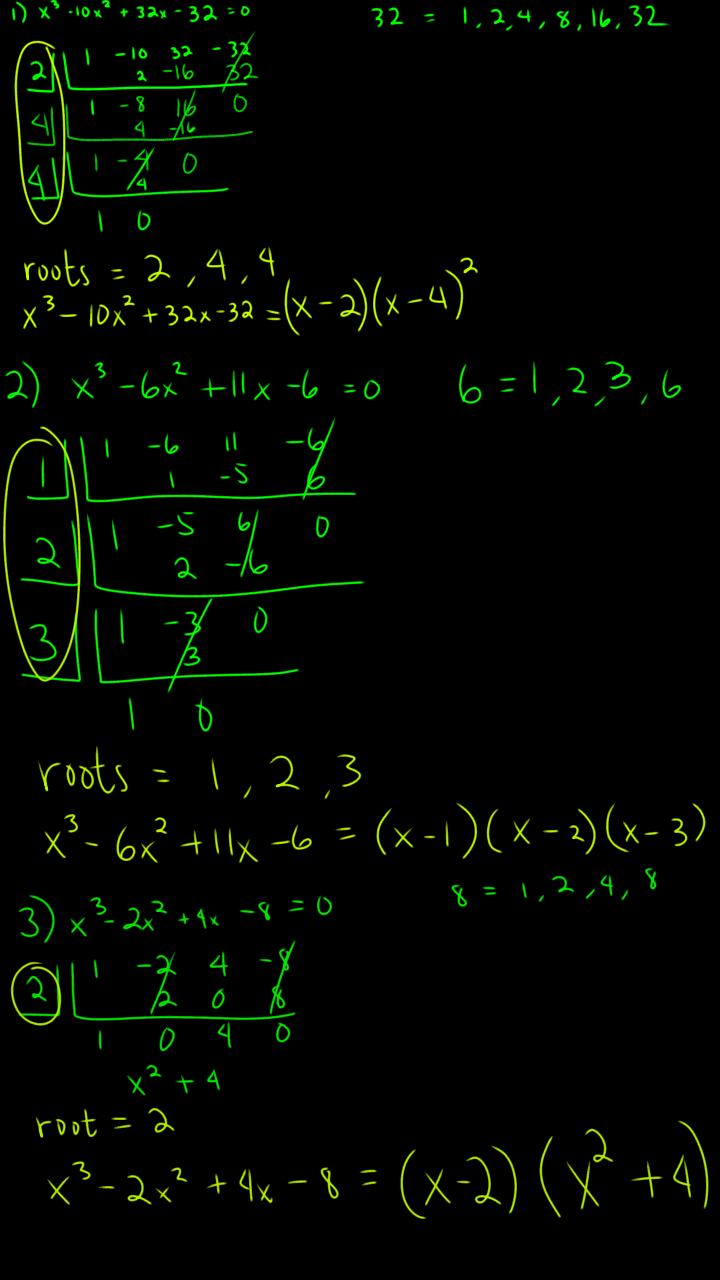 1) x³ -10x² + 32x - 32 = 0
32 = 1, 2, 4, 8, 16, 32
2 | 1 -10 32 -32
2 -16 32
4 | 1 -8 16 0
4 -16
4 | 1 -4 0
4
1 0
roots = 2, 4, 4
x³ - 10x² + 32x - 32 = (x - 2)(x - 4)²
2) x³ - 6x² + 11x - 6 = 0
6 = 1, 2, 3, 6
1 | 1 -6 11 -6
1 -5 6
2 | 1 -5 6 0
2 -6
3 | 1 -3 0
3
1 0
roots = 1, 2, 3
x³ - 6x² + 11x - 6 = (x - 1)(x - 2)(x - 3)
8 = 1, 2, 4, 8
3) x³ - 2x² + 4x - 8 = 0
2 | 1 -2 4 -8
2 0 8
1 0 4 0
x² + 4
root = 2
x³ - 2x² + 4x - 8 = (x - 2)(x² + 4)